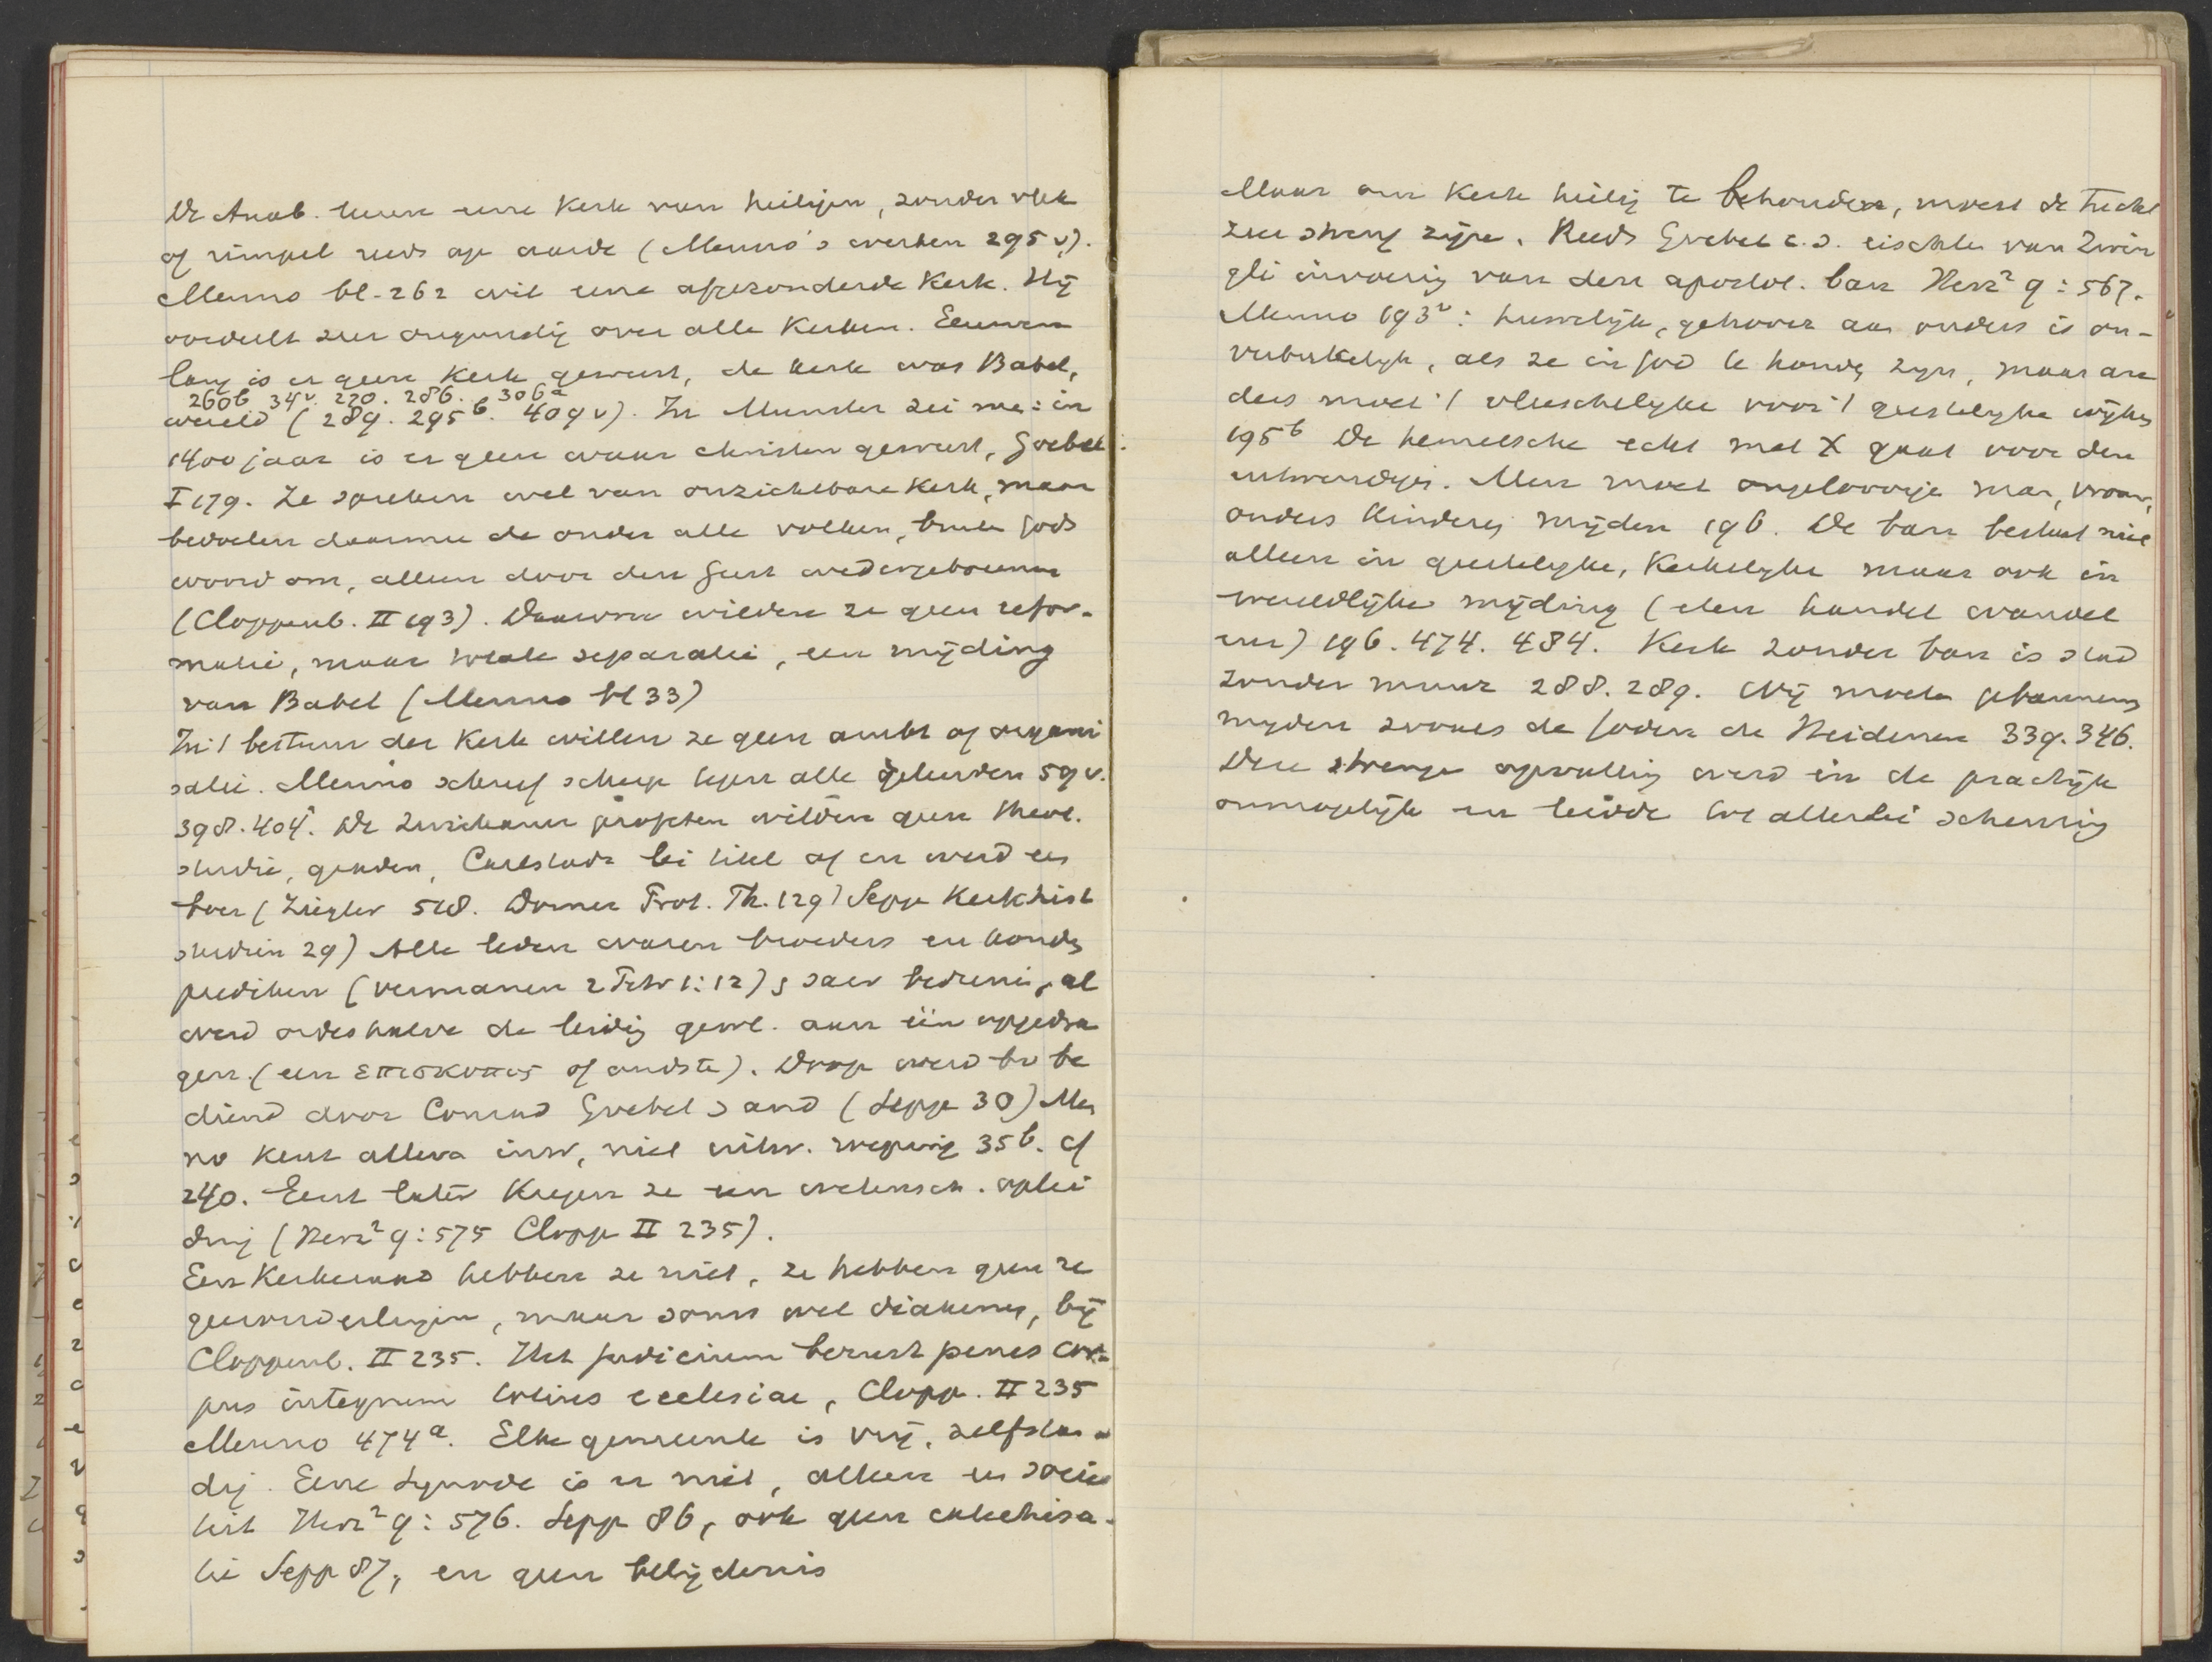 De Anab. leeren eene Kerk van heiligen, zonder vlek
of rimpel reeds op aarde (Menno's werken 295 v).
Menno bl. 262 wil eene afgezonderde Kerk. Hij
oordeelt zeer ongunstig over alle Kerken. Eeuwen
lang is er geene Kerk geweest, de kerk was Babel,
260b 34v. 220. 286. 306a
wereld (289. 295b. 409 v). In Munster zei me: in
1400 jaar is er geen waar christen geweest, Goebel
I 179. Ze spreken wel van onzichtbare Kerk, maar
bedoelen daarmee de onder alle volken, buiten Gods
woord om, alleen door den Geest wedergeborenen
(Cloppenb. II 193). Daarom wilden ze geen refor-
matie, maar separatie, een mijding
van Babel (Menno bl 33)
In 't bestuur der Kerk willen ze geen ambt of organi
satie. Menno schreef scherp tegen alle geleerden 59 v.
398. 404. De Zwickauer profeten wilden geen theol.
studie, graden, Carlstadt lei titel af en werd een
boer (Ziegler 518. Dorner Prot. Th. 129) Sepp Kerkhist
studien 29) Alle leden waren broeders en konden
prediken (vermanen 2 Petr 1:12) s saev bedienen, al
werd ordeshalve de leiding gewl. aan één opgedra
gen. (een επισκοπος of oudste). Doop werd bv be
diend door Conrad Grebel s and (Sepp 30) Men
no kent alleen inw, niet uitw. roeping 35b. cf
240. Eerst later kregen ze een wetensch. oplei
ding (Herz² 9:575 Clopp II 235).
Een Kerkeraad hebben ze niet, ze hebben geen re
geerouderlingen, maar soms wel diakenen, bij
Cloppenb. II 235. Het judicium berust penes cor-
pus integrum totius ecclesiae, Clopp. II 235
Menno 474a. Elke gemeente is vrij, zelfstan-
dig. Eene synode is er niet, alleen een socie
teit Herz² 9:576. Sepp 86, ook geen catechisa-
tie Sepp 87, en geen belijdenis
Maar om Kerk heilig te behouden, moest de tucht
zeer streng zijn. Reeds Grebel c.s. eischten van Zwin
gli invoering van den apostol. ban Herz² 9:567.
Menno 193v: huwelijk, gehoorz aan ouders is on-
verbrekelijk, als ze in God te houden zijn, maar an
ders moet 't vleeschelijke voor 't geestelijke wijken
195b De hemelsche echt met X gaat voor den
uitwendigen. Men moet ongeloovige man, vrouw,
ouders kinderen mijden 196. De ban bestaat niet
alleen in geestelijke, Kerkelijke maar ook in
wereldlijke mijding (eten handel wandel
enz) 196. 474. 484. Kerk zonder ban is stad
zonder muur 288. 289. Wij moeten gebannenen
mijden zooals de Joden de Heidenen 339. 346.
Deze strenge opvatting werd in de practijk
onmogelijk en leidde tot allerlei scheuring